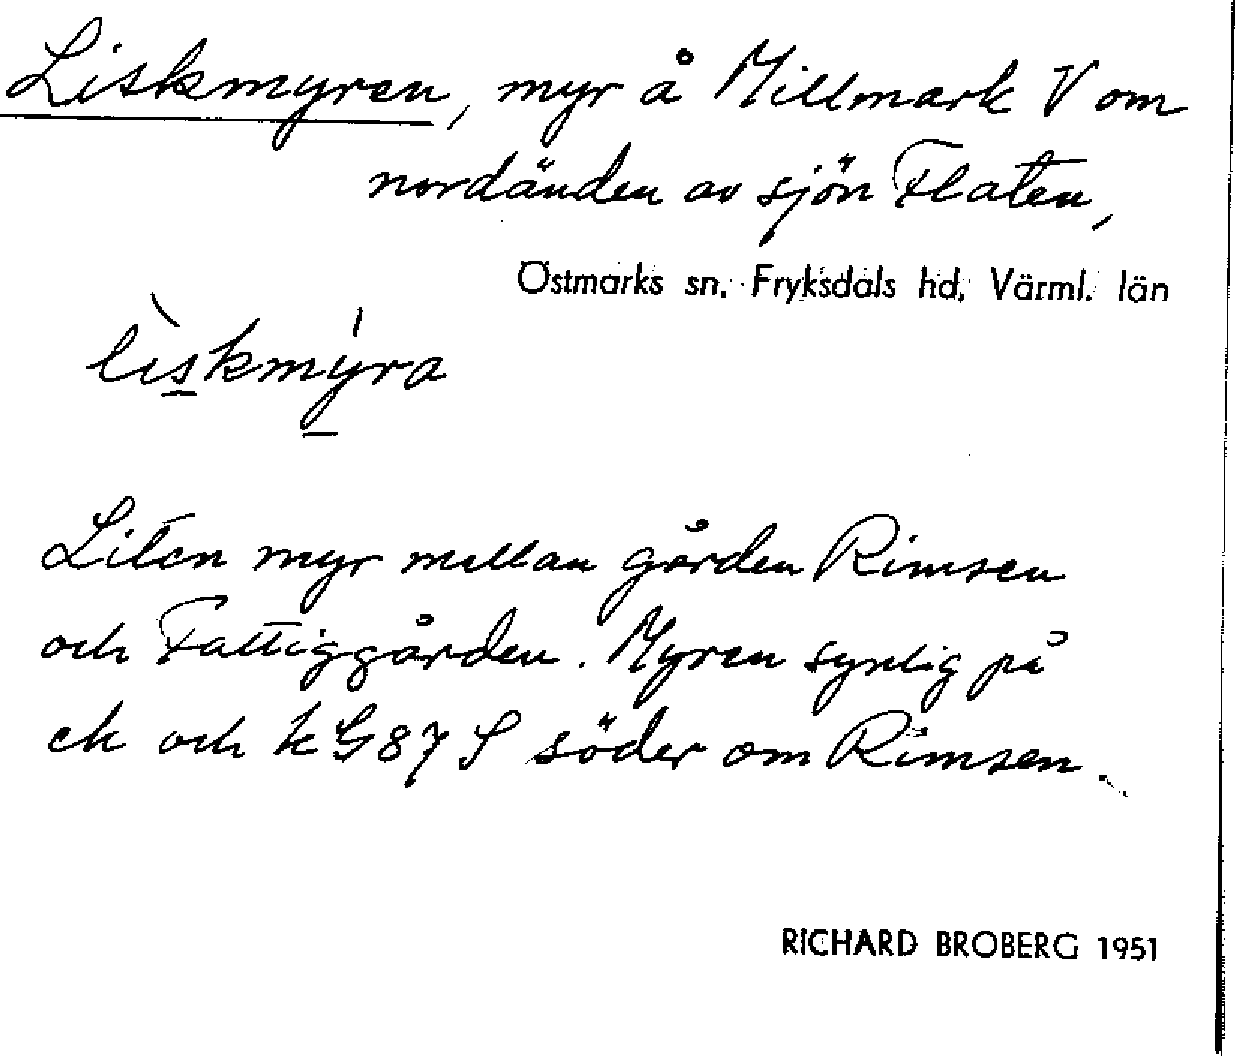 Liskmyren, myr å Millmark V om
nordänden av sjön Flaten,
Östmarks sn. Fryksdals hd, Värml. län
lìskmýra
Liten myr mellan gården Rimsen
och Fattiggården. Myren synlig på
ek och k G 87 S söder om Rimsen.
RICHARD BROBERG 1951